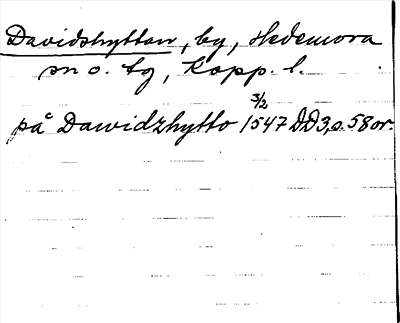 Davidshyttan, by, Hedemora
sn o. tg, Kopp. l.
på Dawidzhytto 3/2 1547 DD3, s. 58 or.